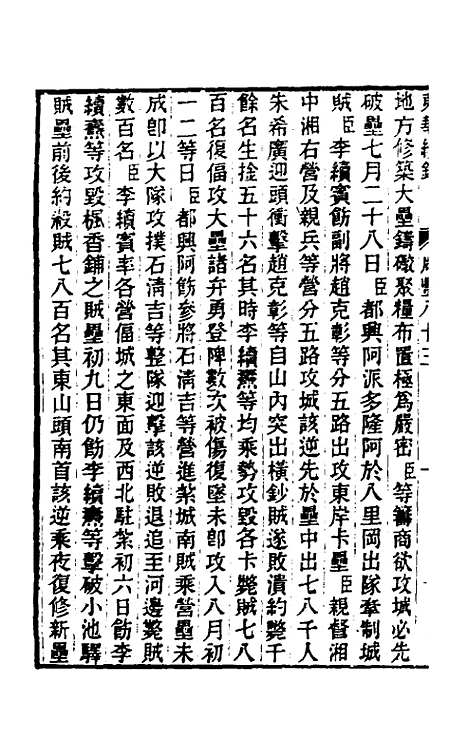 東華續錄 咸豐八十三 一
地方修築大壘鑄礮聚糧布置極爲嚴密臣等籌商欲攻城必先
破壘七月二十八日臣都興阿派多隆阿於八里岡出隊牽制城
賊臣李續賓飭副將趙克彰等分五路出攻東岸卡壘臣親督湘
中湘右營及親兵等營分五路攻城該逆先於壘中出七八千人
朱希廣迎頭衝擊趙克彰等自山內突出橫鈔賊遂敗潰約斃千
餘名生擒五十六名其時李續燾等均乘勢攻毀各卡斃賊七八
百名復偪攻大壘諸弁勇登陴數次被傷復墜未卽攻入八月初
一二等日臣都興阿飭參將石清吉等營進紮城南賊乘營壘未
成卽以大隊攻撲石清吉等整隊迎擊該逆敗退追至河邊斃賊
數百名臣李續賓率各營偪城之東面及西北駐紮初六日飭李
續燾等攻毀楓香鋪之賊壘初九日仍飭李續燾等擊破小池驛
賊壘前後約殺賊七八百名其東山頭南首該逆乘夜復修新壘